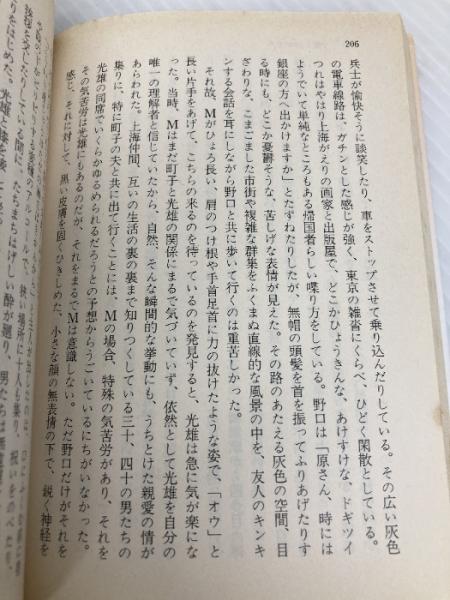 206
兵士が愉快そうに談笑したり、車をストップさせて乗り込んだりしている。その広い灰色
の電車線路は、ガチンとした感じが強く、東京の雑沓にくらべ、ひどく閑散としている。
つれはやはり上海がえりの画家と出版屋で、どこかひょうきんな、あけすけな、ドギツイ
ようでいて単純なところもある帰国者らしい喋り方をしている。野口は「原さん、時には
銀座の方へ出かけますか」とたずねたりしたが、無帽の頭髪を首を振ってふりあげたりす
る時にも、どこか憂鬱そうな、苦しげな表情が見えた。その路のあたえる灰色の空間、目
ざわりな、こまごました市街や複雑な群集をふくまぬ直線的な風景の中を、友人のキンキ
ンする会話を耳にしながら野口と共に歩いて行くのは重苦しかった。
それ故、Mがひょろ長い、肩のつけ根や手首足首に力の抜けたような姿で、「オウ」と
長い片手をあげて、こちらの来るのを待っているのを発見すると、光雄は急に気が楽にな
った。当時、Mはまだ町子と光雄の関係にまるで気づいていず、依然として光雄を自分の
唯一の理解者と信じていたから、自然、そんな瞬間的な挙動にも、うちとけた親愛の情が
あらわれた。上海仲間、互いの生活の裏の裏まで知りつくしている三十、四十の男たちの
集りに、特に町子の夫と共に出て行くことには、Mの場合、特殊の気苦労があり、それを
光雄の同席でいくらかゆるめられるだろうとの予想からうごいているにちがいなかった。
その気苦労は光雄にもあるのだが、それをまるでMは意識しない。ただ野口だけがそれを
感じ、それに対して、黒い皮膚を固くひきしめた、小さな顔の無表情の下で、鋭く神経を